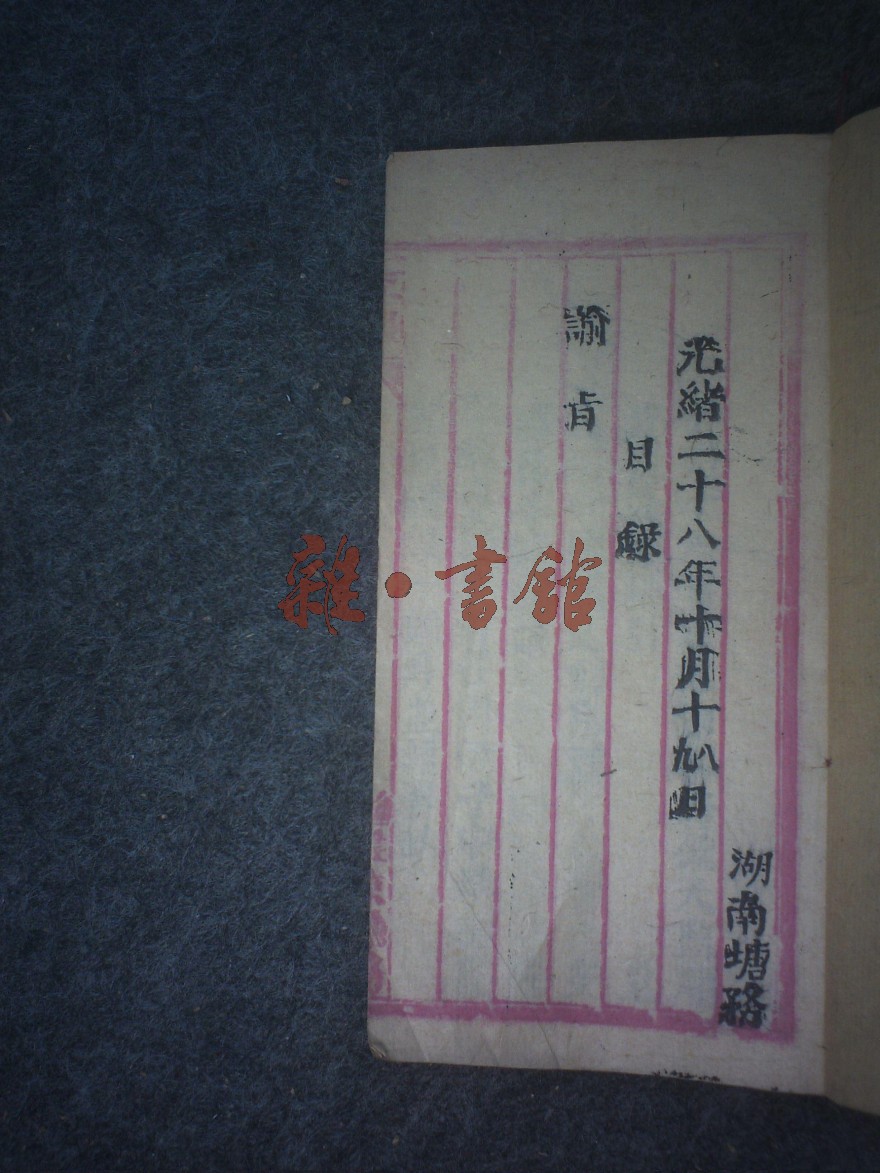 湖南塘務
光緒二十八年十月十九日
目錄
諭旨
雜·書館